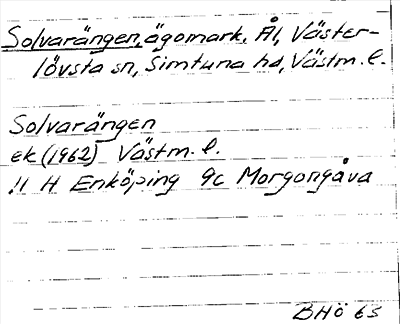 Solvarängen, ägomark. Ål, Väster-
lövsta sn, Simtuna hd, Västm. l.
Solvarängen
ek (1962) Västm. l.
11 H Enköping 9c Morgongåva
BHö 65